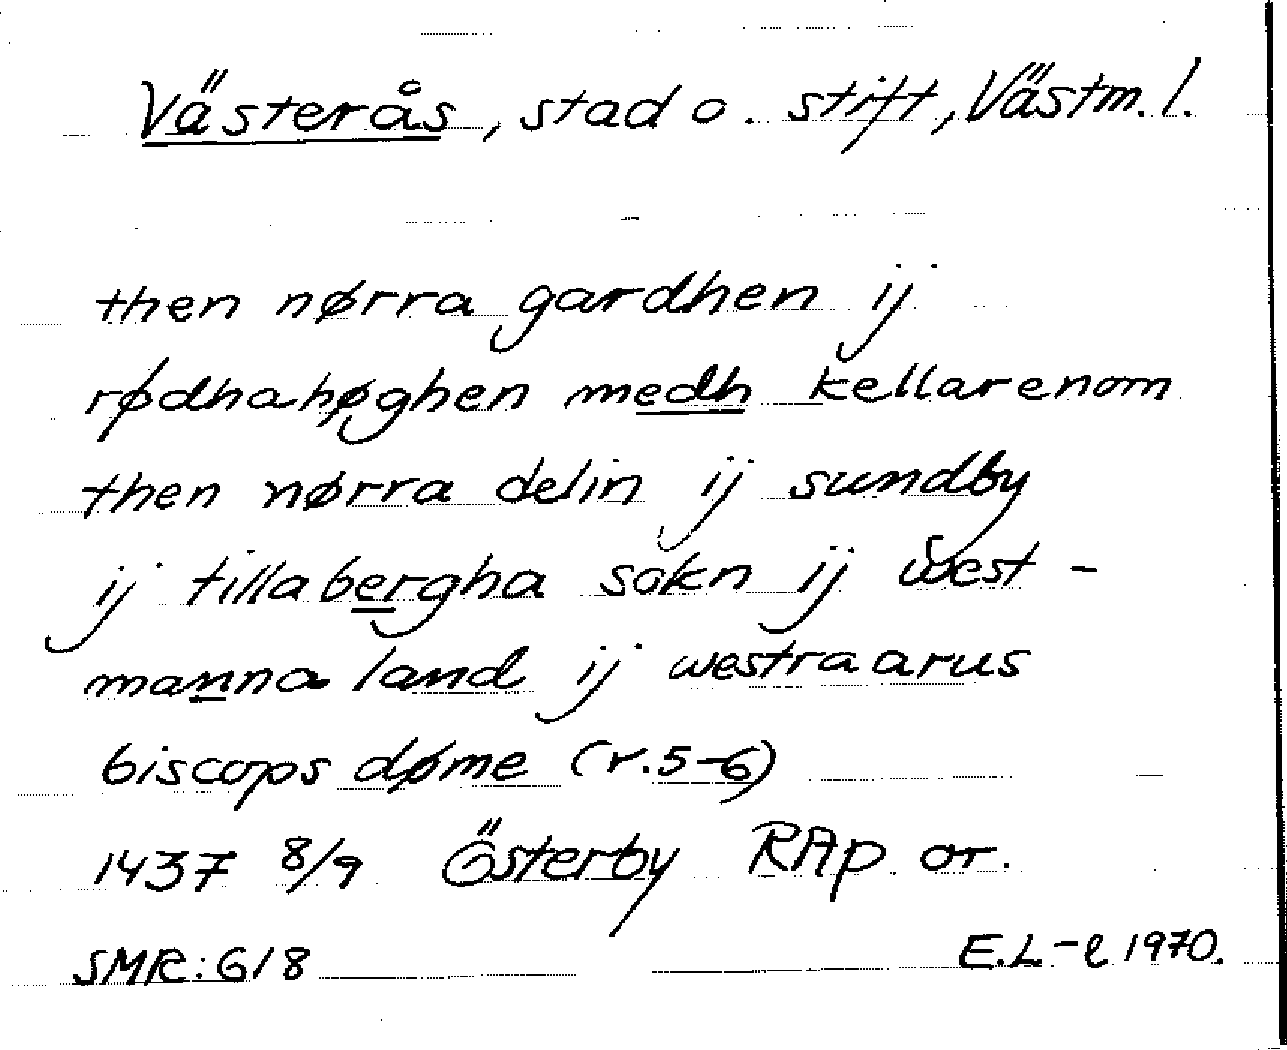 Västerås, stad o. stift, Västm. l.
then nørra gardhen ij
rødhahøghen medh kellarenom
then nørra delin ij sundby
ij tillabergha sokn ij west-
manna land ij westraarus
biscops døme (r.5-6)
1437 8/9 Österby RAp or.
SMR:618 E.L-l 1970.